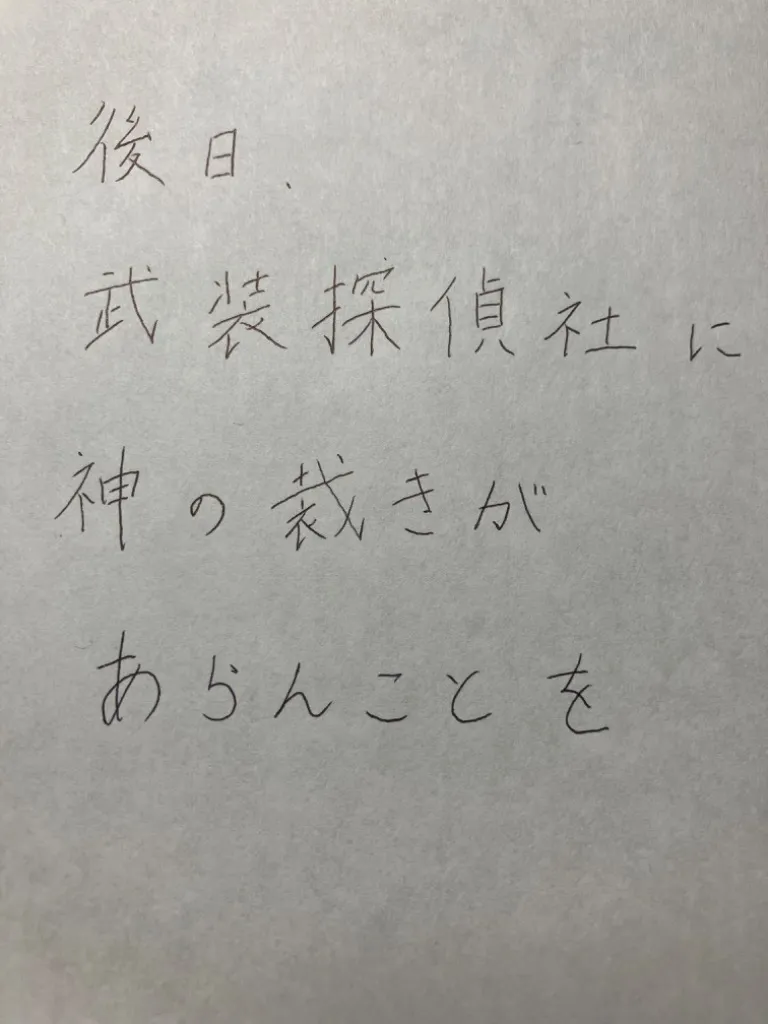 後日、
武装探偵社に
神の裁きが
あらんことを